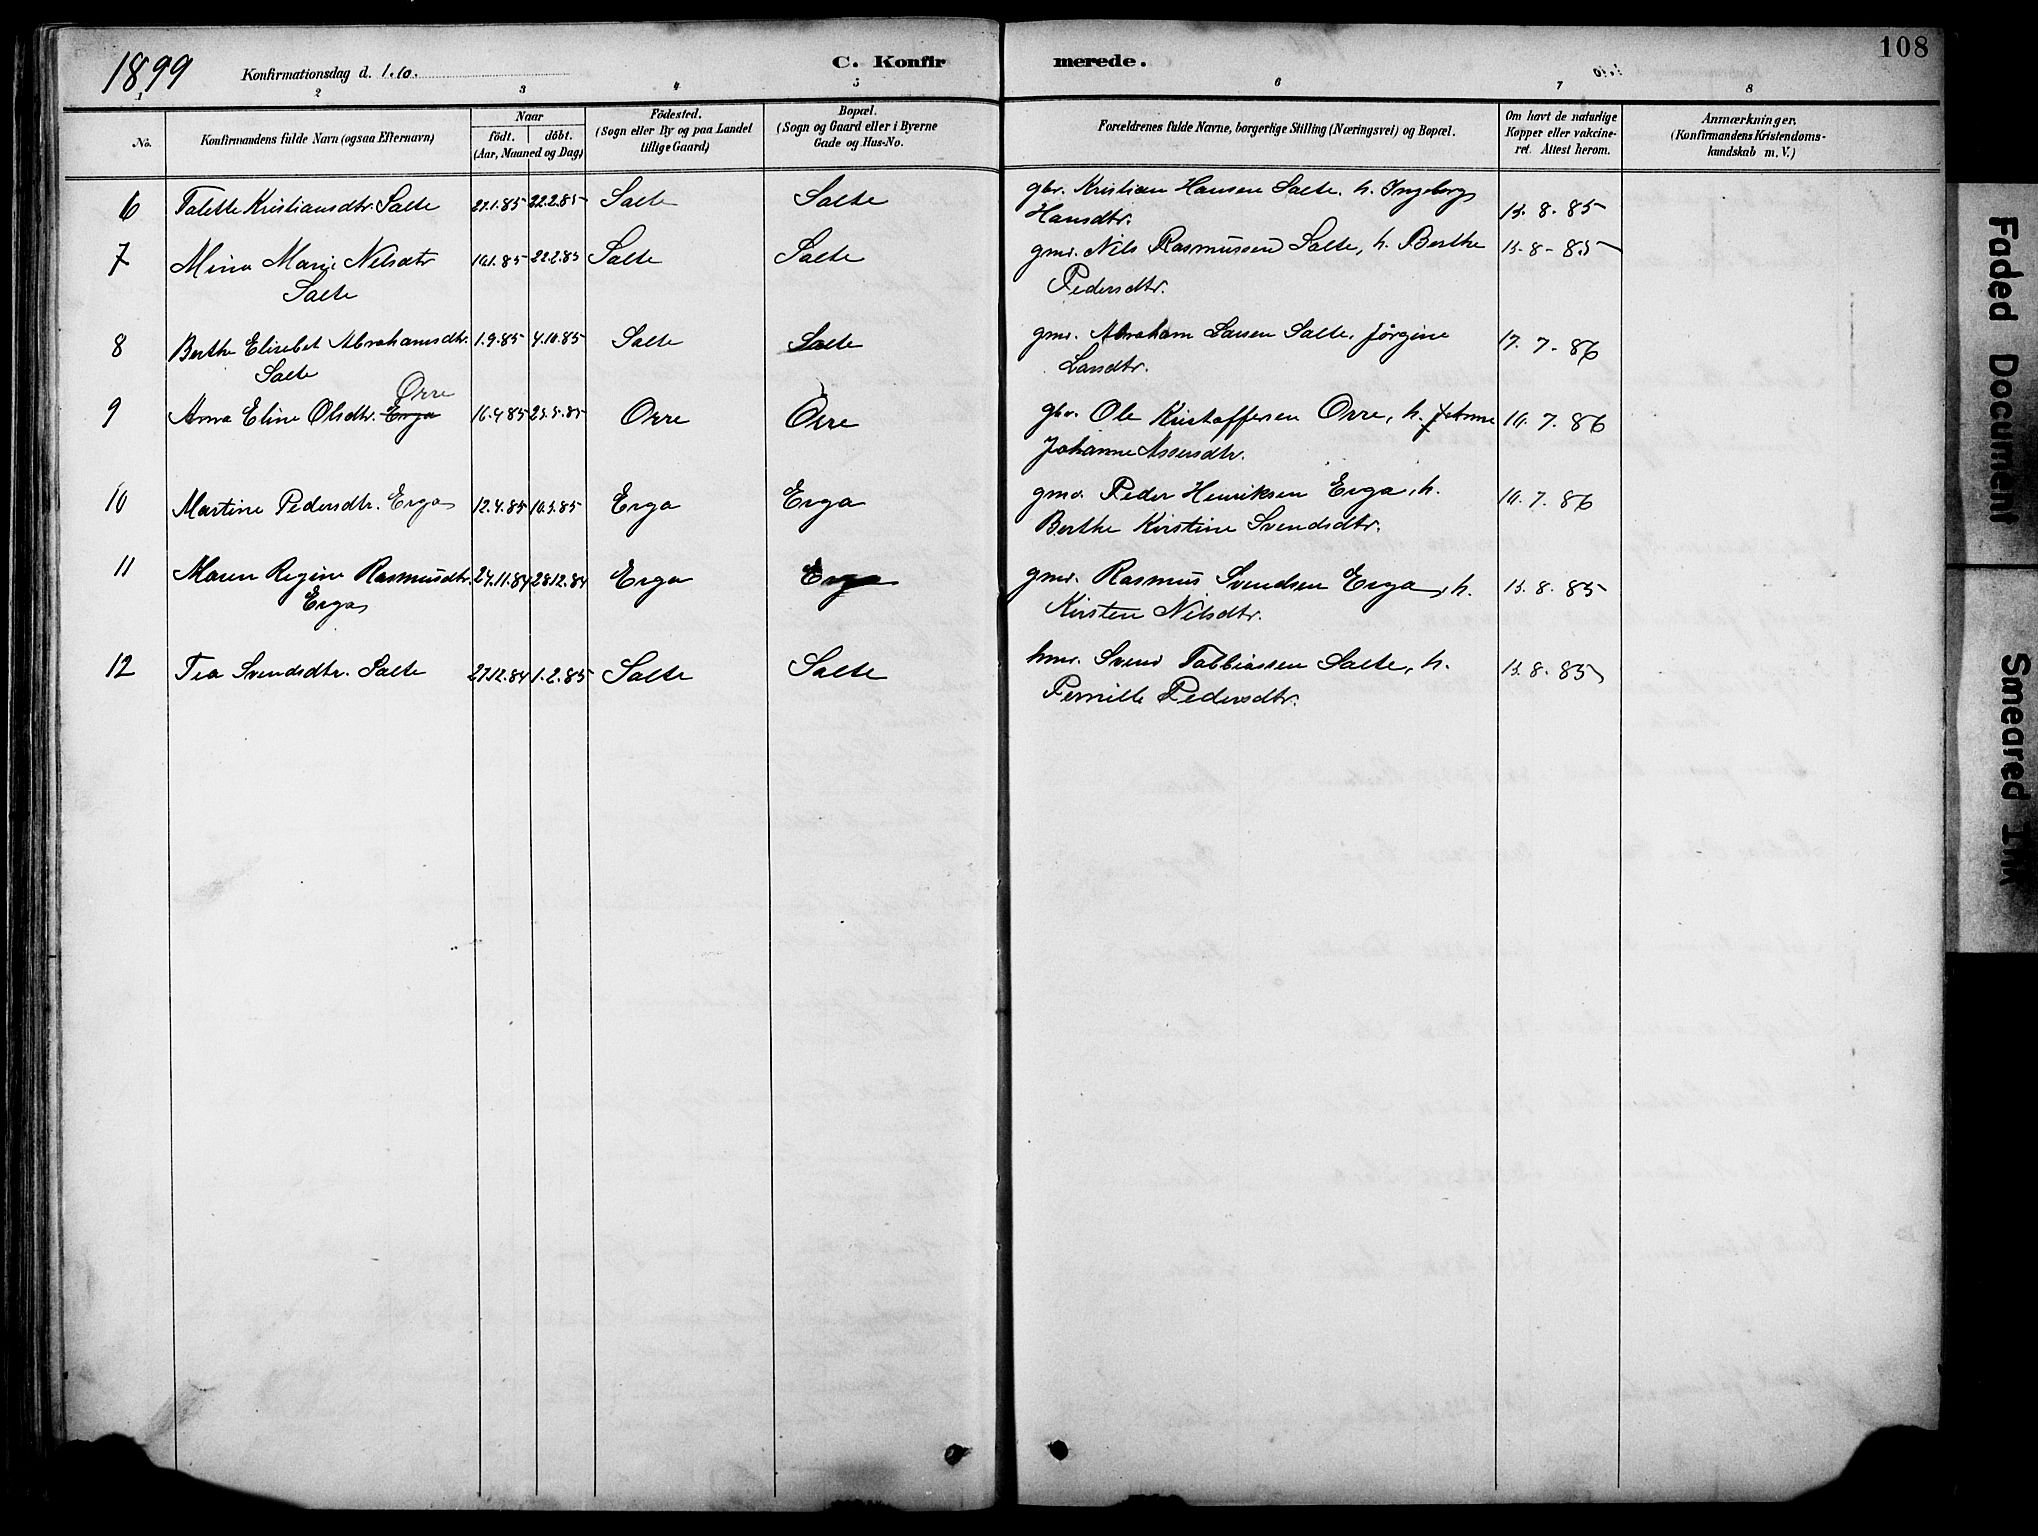 1899 Konfirmationsdag d. 1.10. C. Konfirmerede. 108
1 2 3 4 5 6 7 8
No.
Konfirmandens fulde Navn (ogsaa Efternavn)
Naar
födt. döbt.
(Aar, Maaned og Dag)
Födested.
(Sogn eller By og paa Landet
tillige Gaard)
Bopæl.
(Sogn og Gaard eller i Byerne
Gade og Hus-No.
Forældrenes fulde Navne, borgerlige Stilling (Næringsvei) og Bopæl.
Om havt de naturlige
Kopper eller vakcine-
ret. Attest herom.
Anmærkninger.
(Konfirmandens Kristendoms-
kundskab m. V.)
6 Talette Kristiansdtr. Salte 27.1.85 22.2.85 Salte Salte gbr. Kristian Hansen Salte, h. Ingeborg 13.8.85
Hansdtr.
7 Mina Marie Nilsdtr 10.1.85 22.2.85 Salte Salte gmd. Nils Rasmussen Salte, h. Berthe 13.8-85
Salte Pedersdtr.
8 Berthe Elisebet Abrahamsdtr. 1.9.85 4.10.85 Salte Salte gmd. Abraham Larsen Salte, Jørgine 17.7.86
Salte Larsdtr.
Orre
9 Anna Eline Olsdtr. Erga 16.4.85 25.5.85 Orre Orre gbr. Ole Kristoffersen Orre, h. Anne 10.7.86
Johanne Assersdtr.
10 Martine Pedersdtr. Erga 12.4.85 10.5.85 Erga Erga gmd. Peder Henriksen Erga, h. 10.7.86
Berthe Kirstine Svendsdtr.
11 Maren Regine Rasmusdtr. 24.11.84 28.12.84 Erga Erga gmd. Rasmus Svendsen Erga, h. 13.8.85
Erga Kirsten Nilsdtr.
12 Tea Svendsdtr. Salte 27.12.84 1.2.85 Salte Salte hmd. Svend Tobbiassen Salte, h. 13.8.85
Pernille Pedersdtr.
Faded Document
Smeared Ink